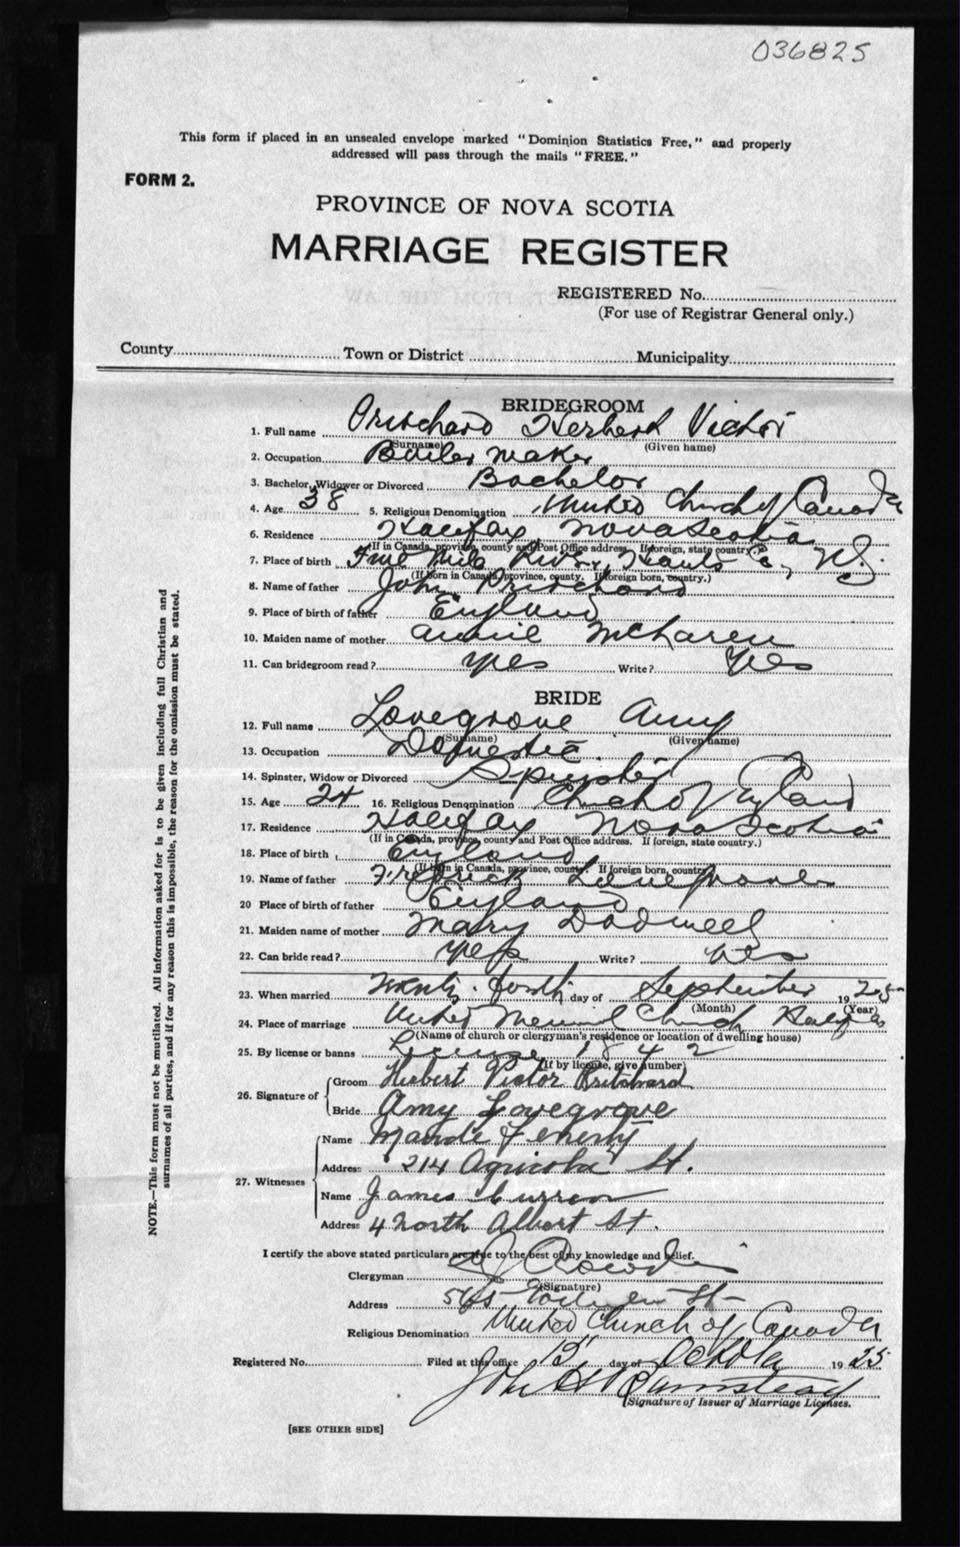 036825
This form if placed in an unsealed envelope marked "Dominion Statistics Free," and properly
addressed will pass through the mails "FREE."
FORM 2.
PROVINCE OF NOVA SCOTIA
MARRIAGE REGISTER
REGISTERED No.
(For use of Registrar General only.)
County Town or District Municipality
BRIDEGROOM
1. Full name Pritchard Herbert Victor
(Surname) (Given name)
2. Occupation Boiler maker
3. Bachelor, Widower or Divorced Bachelor
4. Age 38 5. Religious Denomination United Church of Canada
6. Residence Halifax Nova Scotia
(If in Canada, province, county and Post Office address. If foreign, state country.)
7. Place of birth Five Mile River, Hants Co, N.S.
(If born in Canada, province, county. If foreign born, country.)
8. Name of father John Pritchard
9. Place of birth of father England
10. Maiden name of mother Annie McLaren
11. Can bridegroom read? yes Write? yes
BRIDE
12. Full name Lovegrove Amy
(Surname) (Given name)
13. Occupation Domestic
14. Spinster, Widow or Divorced Spinster
15. Age 24 16. Religious Denomination Church of England
17. Residence Halifax Nova Scotia
(If in Canada, province, county and Post Office address. If foreign, state country.)
18. Place of birth England
(If born in Canada, province, county. If foreign born, country.)
19. Name of father Fredrick Lovegrove
20 Place of birth of father England
21. Maiden name of mother Mary Dodwell
22. Can bride read? yes Write? yes
23. When married Twenty-fourth day of September 1925
(Month) (Year)
24. Place of marriage United Memorial Church Halifax
(Name of church or clergyman's residence or location of dwelling house)
25. By license or banns License 1842
(If by license, give number)
26. Signature of Groom Herbert Victor Pritchard
Bride Amy Lovegrove
27. Witnesses Name Maude Fenerty
Address 214 Agricola St.
Name James Curren
Address 4 North Albert St.
I certify the above stated particulars are true to the best of my knowledge and belief.
Clergyman
(Signature)
Address St
Religious Denomination United Church of Canada
Registered No. Filed at this office 15 day of October 1925
John H Barnstead
(Signature of Issuer of Marriage Licenses.
[SEE OTHER SIDE]
NOTE.—This form must not be mutilated. All information asked for is to be given including full Christian and
surnames of all parties, and if for any reason this is impossible, the reason for the omission must be stated.